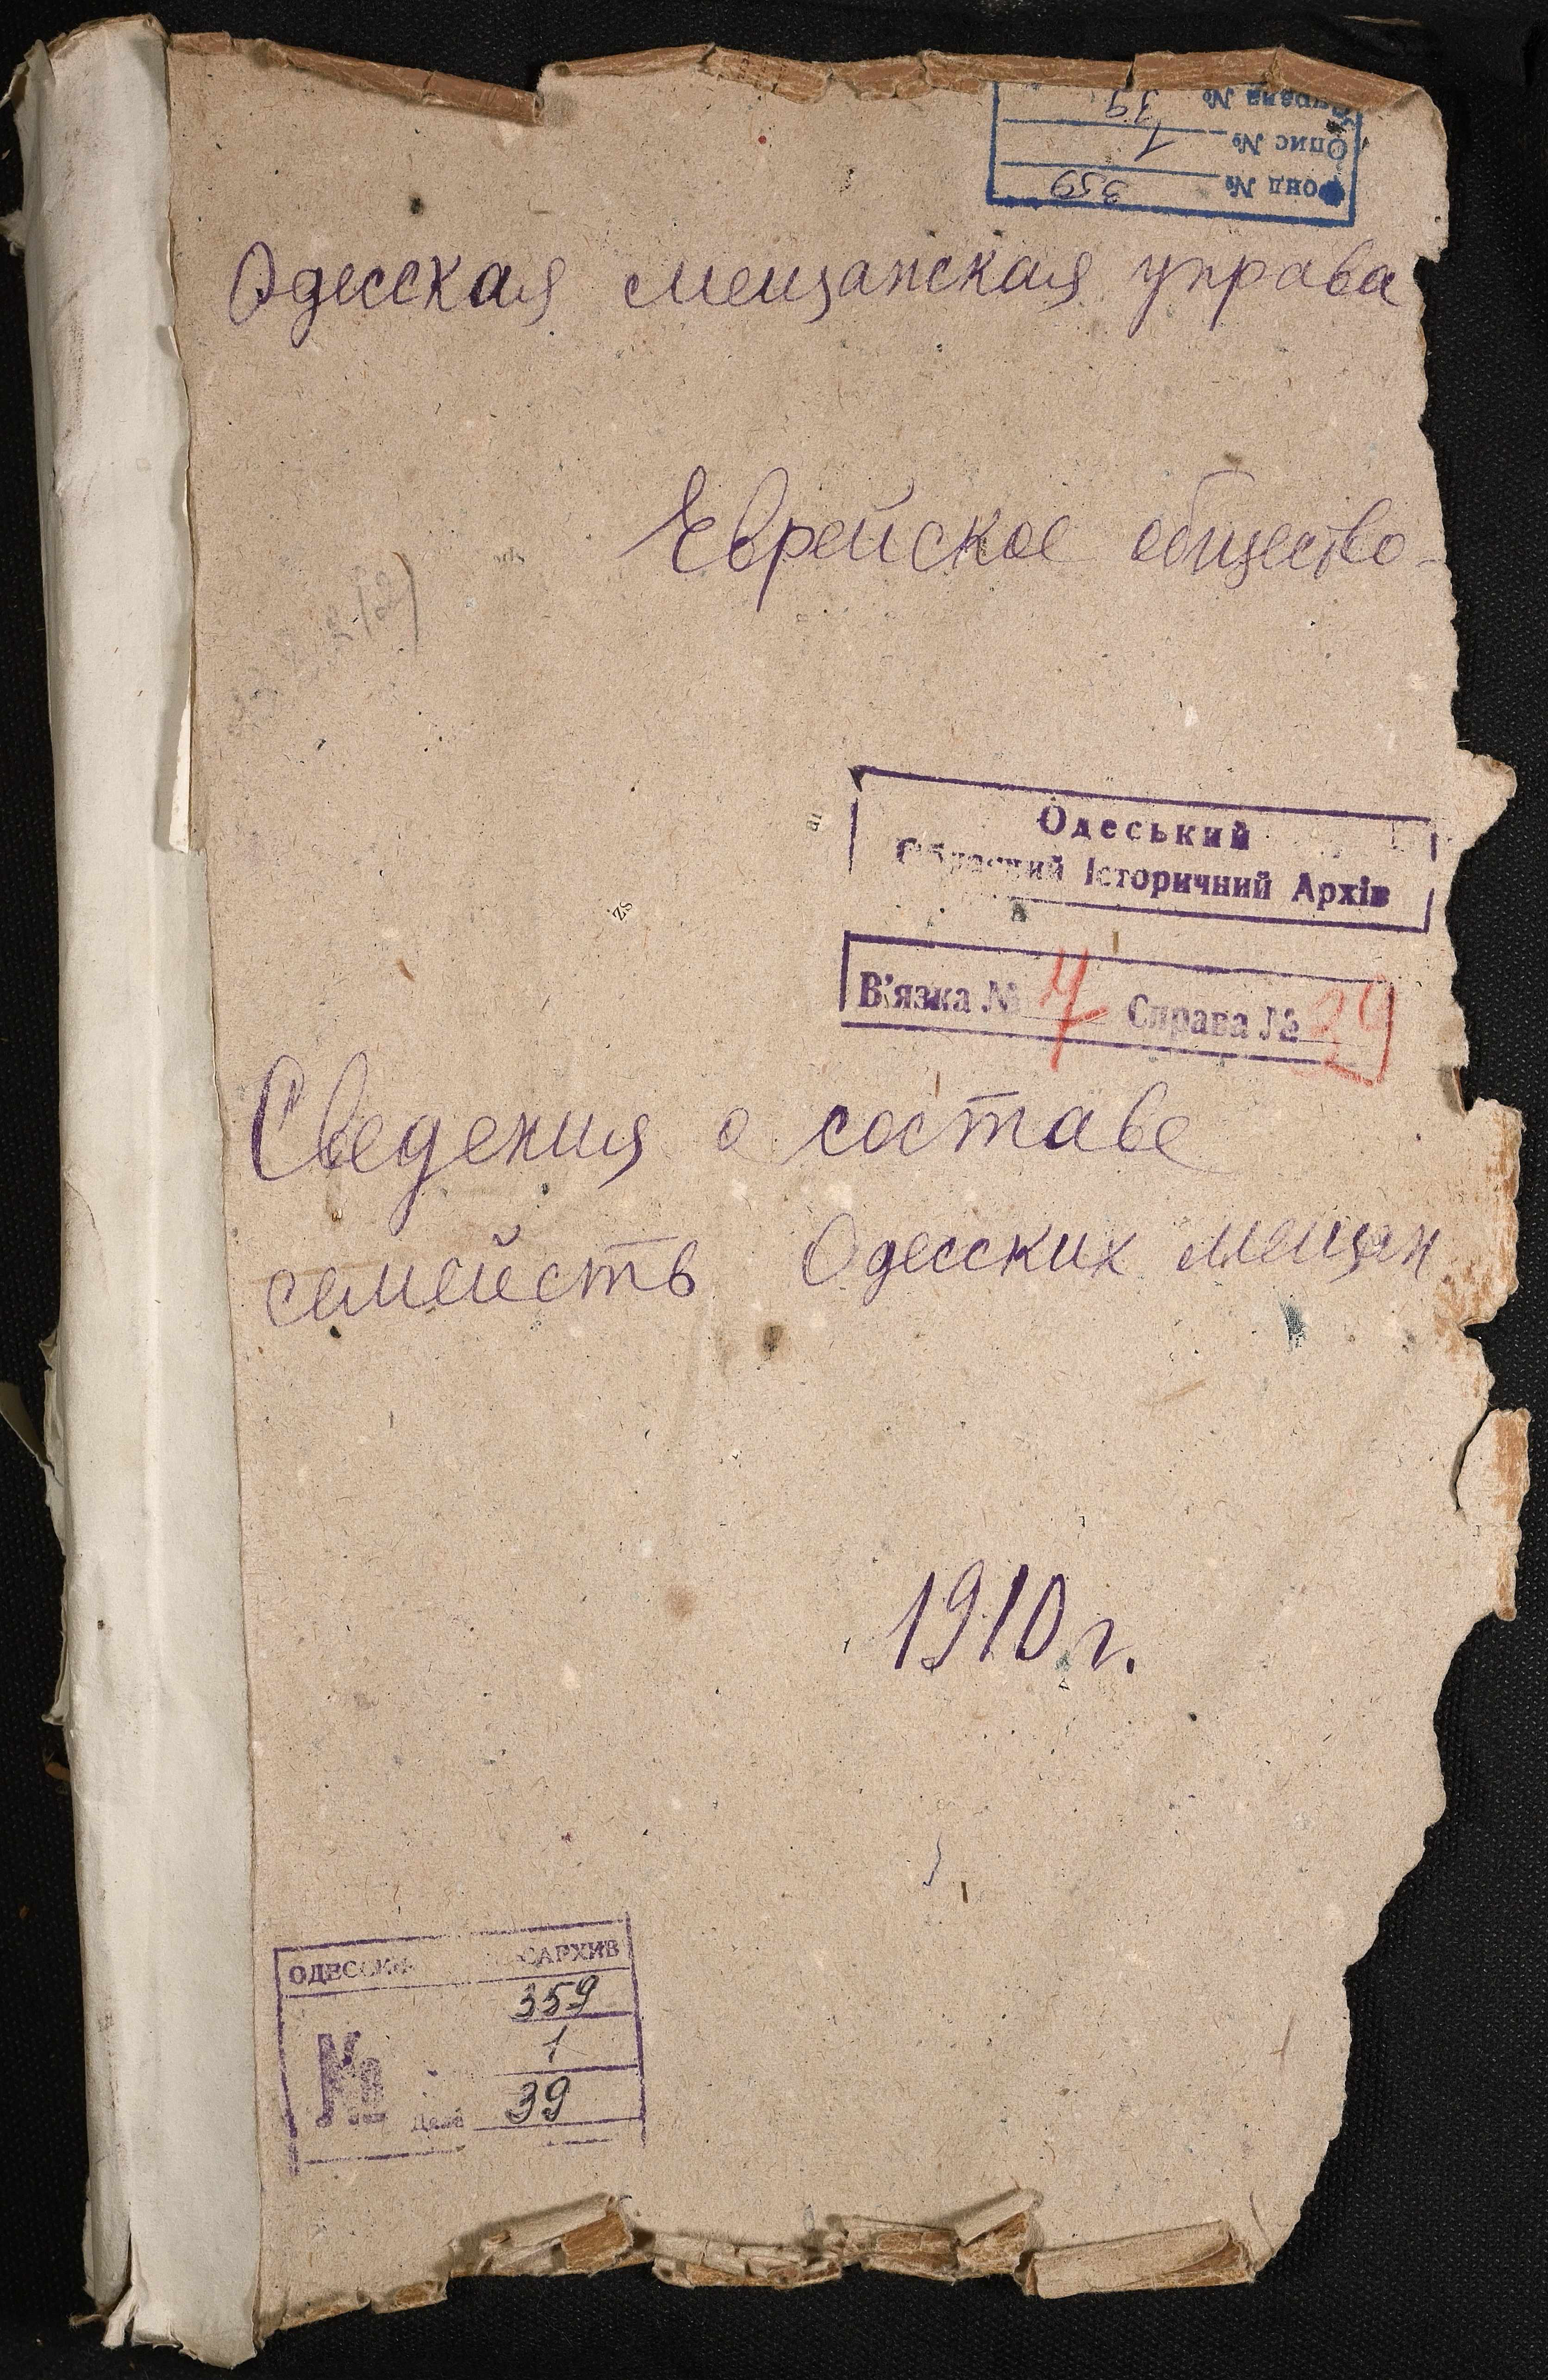 Справа № 39
Опис № 1
Фонд № 359
Одесская мещанская управа
Еврейское общество
Одеський
Обласний Історичний Архів
В'язка № 7 Справа № 29
Сведения о составе
семейств Одесских мещан
1910 г.
359
№
1
Дело 39